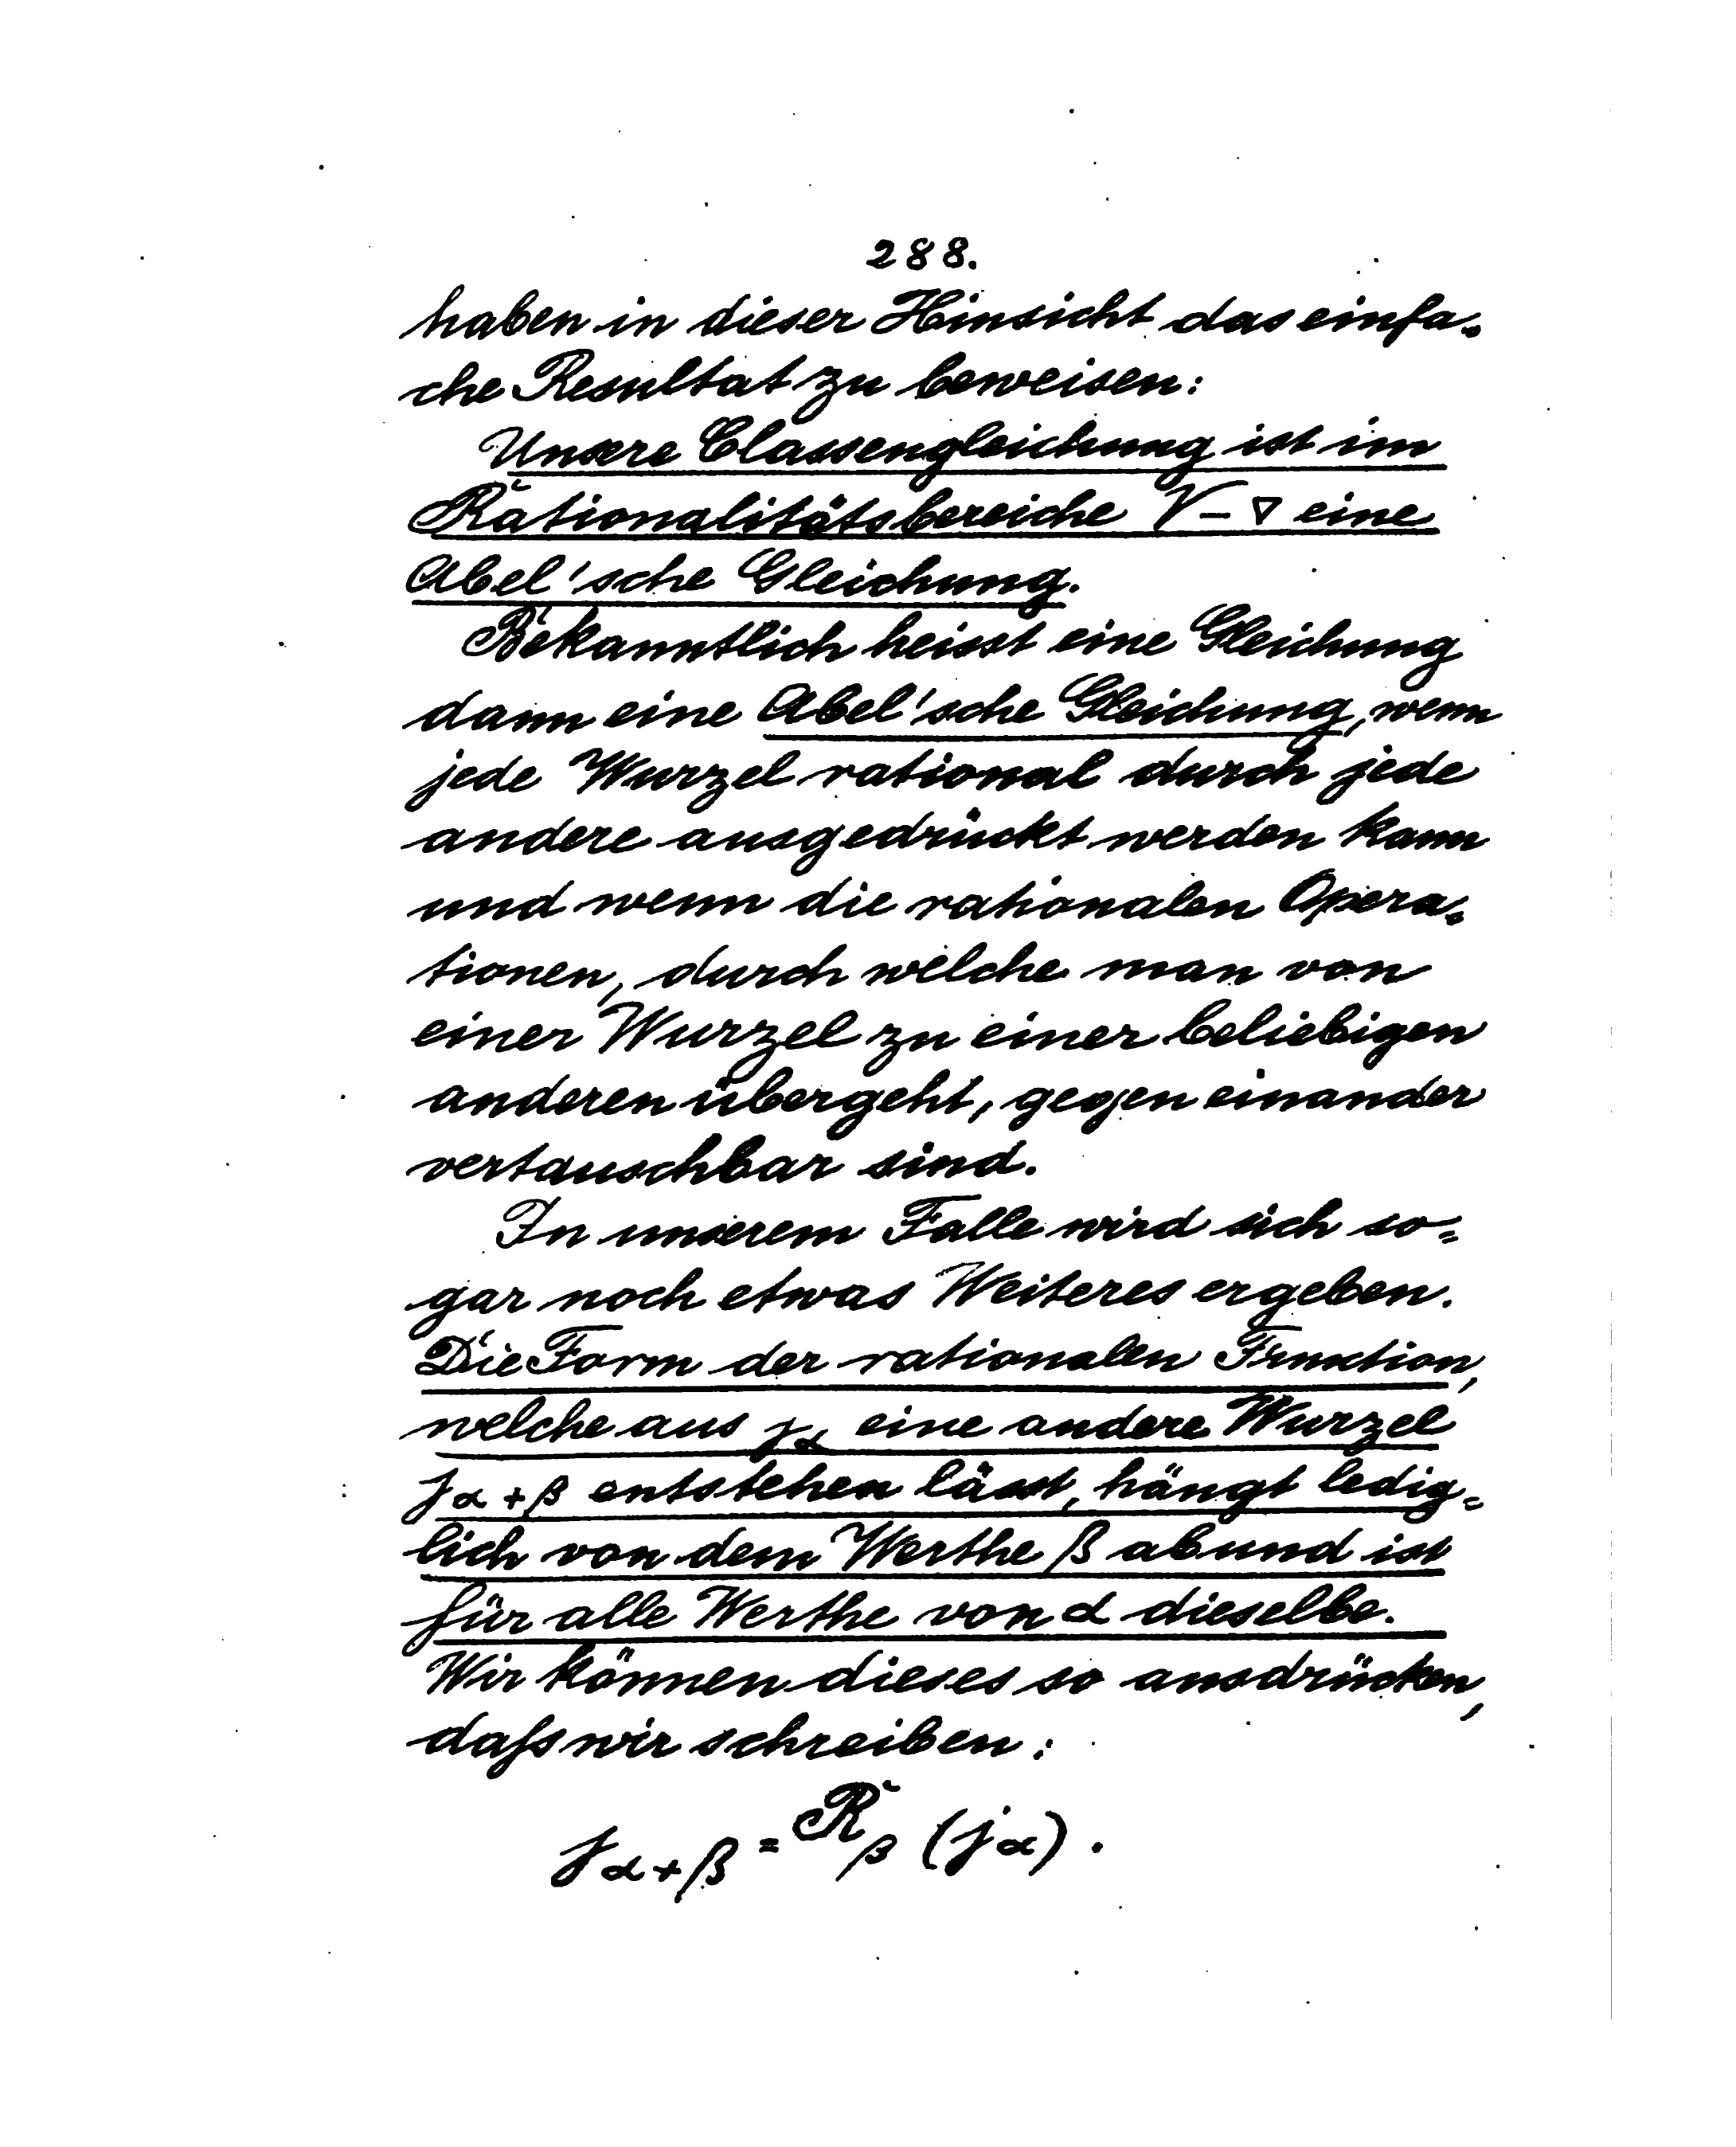 288.
haben in dieser Hinsicht das einfa-
che Resultat zu beweisen:
Unsere Classengleichung ist im
Rationalitätsbereiche √-∇ eine
Abel'sche Gleichung.
Bekanntlich heisst eine Gleichung
dann eine Abel'sche Gleichung, wenn
jede Wurzel rational durch jede
andere ausgedrückt werden kann
und wenn die rationalen Opera-
tionen, durch welche man von
einer Wurzel zu einer beliebigen
anderen übergeht, gegen einander
vertauschbar sind.
In unserem Falle wird sich so=
gar noch etwas Weiteres ergeben.
Die Form der rationalen Funktion,
welche aus j_α eine andere Wurzel
j_α+β entstehen lässt, hängt ledig=
lich von dem Werthe β ab und ist
für alle Werthe von α dieselbe.
Wir können dieses so ausdrücken,
daß wir schreiben:
j_α+β = R_β (j_α).